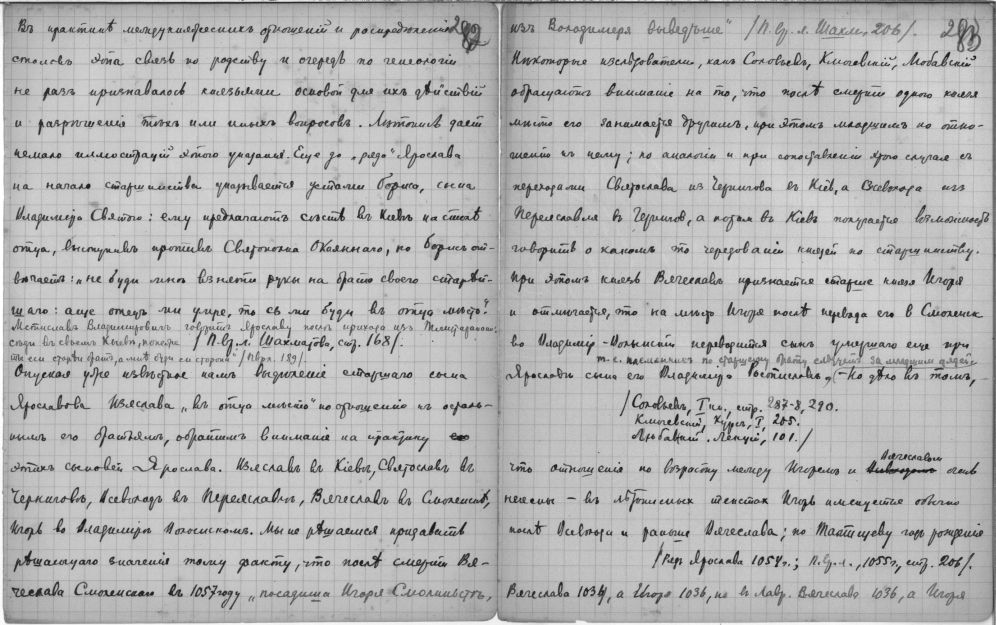 282
Въ практикѣ междукняжескихъ отношеній и распредѣленія
столовъ эта связь по родству и очередь по генеологіи
не разъ признавалось князьями основой для ихъ дѣйствій
и разрѣшенія тѣхъ или иныхъ вопросовъ. Лѣтопись даетъ
немало иллюстрацій этого указанія. Еще до „ряда" Ярослава
на начало старшинства указывается устами Бориса, сына
Владиміра Святого: ему предлагаютъ сѣсть въ Кіевѣ на столѣ
отца, выступивъ противъ Святополка Окаяннаго, но Борисъ от-
вѣчаетъ: „не буди мнѣ възняти рукы на брата своего старѣй-
шаго: аще отець ми умре, то сь ми буди въ отца мѣсто".
Мстиславъ Владиміровичъ говоритъ Ярославу послѣ прихода изъ Тмутаракани:
сяди въ своемъ Кыевѣ, понеже / П. Вр. л. Шахматова, стр. 168/.
ты еси старѣй братъ, а мнѣ буди си сторона"
Опуская уже извѣстное намъ выдѣленіе старшаго сына
Ярославова Изяслава „въ отца мѣсто" по отношенію къ осталь-
нымъ его братьямъ, обратимъ вниманіе на практику
этихъ сыновей Ярослава. Изяславъ въ Кіевѣ, Святославъ въ
Черниговѣ, Всеволодъ въ Переяславлѣ, Вячеславъ въ Смоленскѣ,
Игорь во Владимірѣ Волынскомъ. Мы не рѣшаемся придавать
рѣшающаго значенія тому факту, что послѣ смерти Вя-
чеслава Смоленскаго въ 1057 году „посадиша Игоря Смолиньстѣ,
283
изъ Володимеря выведъше" /П. Вр. л. Шахм., 206/.
Нѣкоторые изслѣдователи, какъ Соловьевъ, Ключевскій, Любавскій
обращаютъ вниманіе на то, что послѣ смерти одного князя
мѣсто его занимается другимъ, при этомъ младшимъ по отно-
шенію къ нему; по аналогіи и при сопоставленіи этого случая съ
переходами Святослава изъ Чернигова въ Кіевъ, а Всеволода изъ
Переяславля въ Черниговъ, а потомъ въ Кіевъ получается возможность
говорить о какомъ то чередованіи князей по старшинству.
При этомъ князь Вячеславъ признается старше князя Игоря
и отмѣчается, что на мѣсто Игоря послѣ перевода его въ Смоленск
во Владиміръ-Волынскій переводится сынъ умершаго еще при
т-е. племянникъ по старшему брату слѣдуетъ за младшимъ дядей.
Ярославѣ сына его Владиміра Ростиславъ, — Но дѣло въ томъ,
/Соловьевъ, I кн., стр. 287-8, 290.
Ключевскій, Курсъ, I, 205.
Любавскій. Лекціи, 101./
что отношеніе по возрасту между Игоремъ и Вячеславомъ очень
неясны — въ лѣтописныхъ текстахъ Игорь именуется обычно
послѣ Всеволода и раньше Вячеслава; по Татищеву годъ рожденія
/Рядъ Ярослава 1054 г.; П. Вр. л., 1055 г., стр. 206/.
Вячеслава 1034, а Игоря 1036, но въ Лавр. Вячеслава 1036, а Игоря